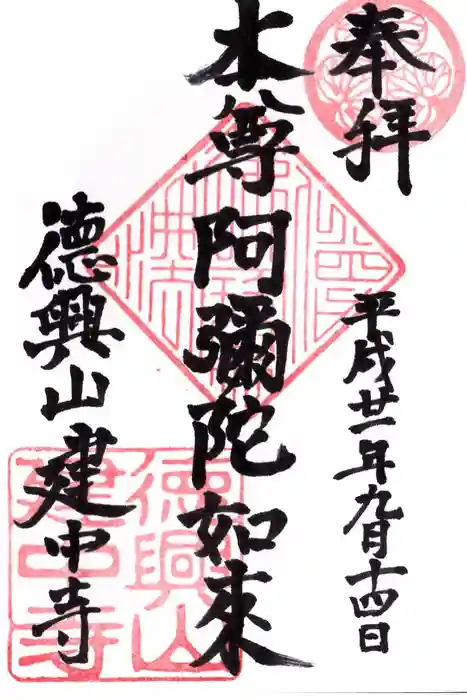 奉拝
平成廿一年九月十四日
本尊阿彌陀如来
德興山建中寺
德興山
建中寺